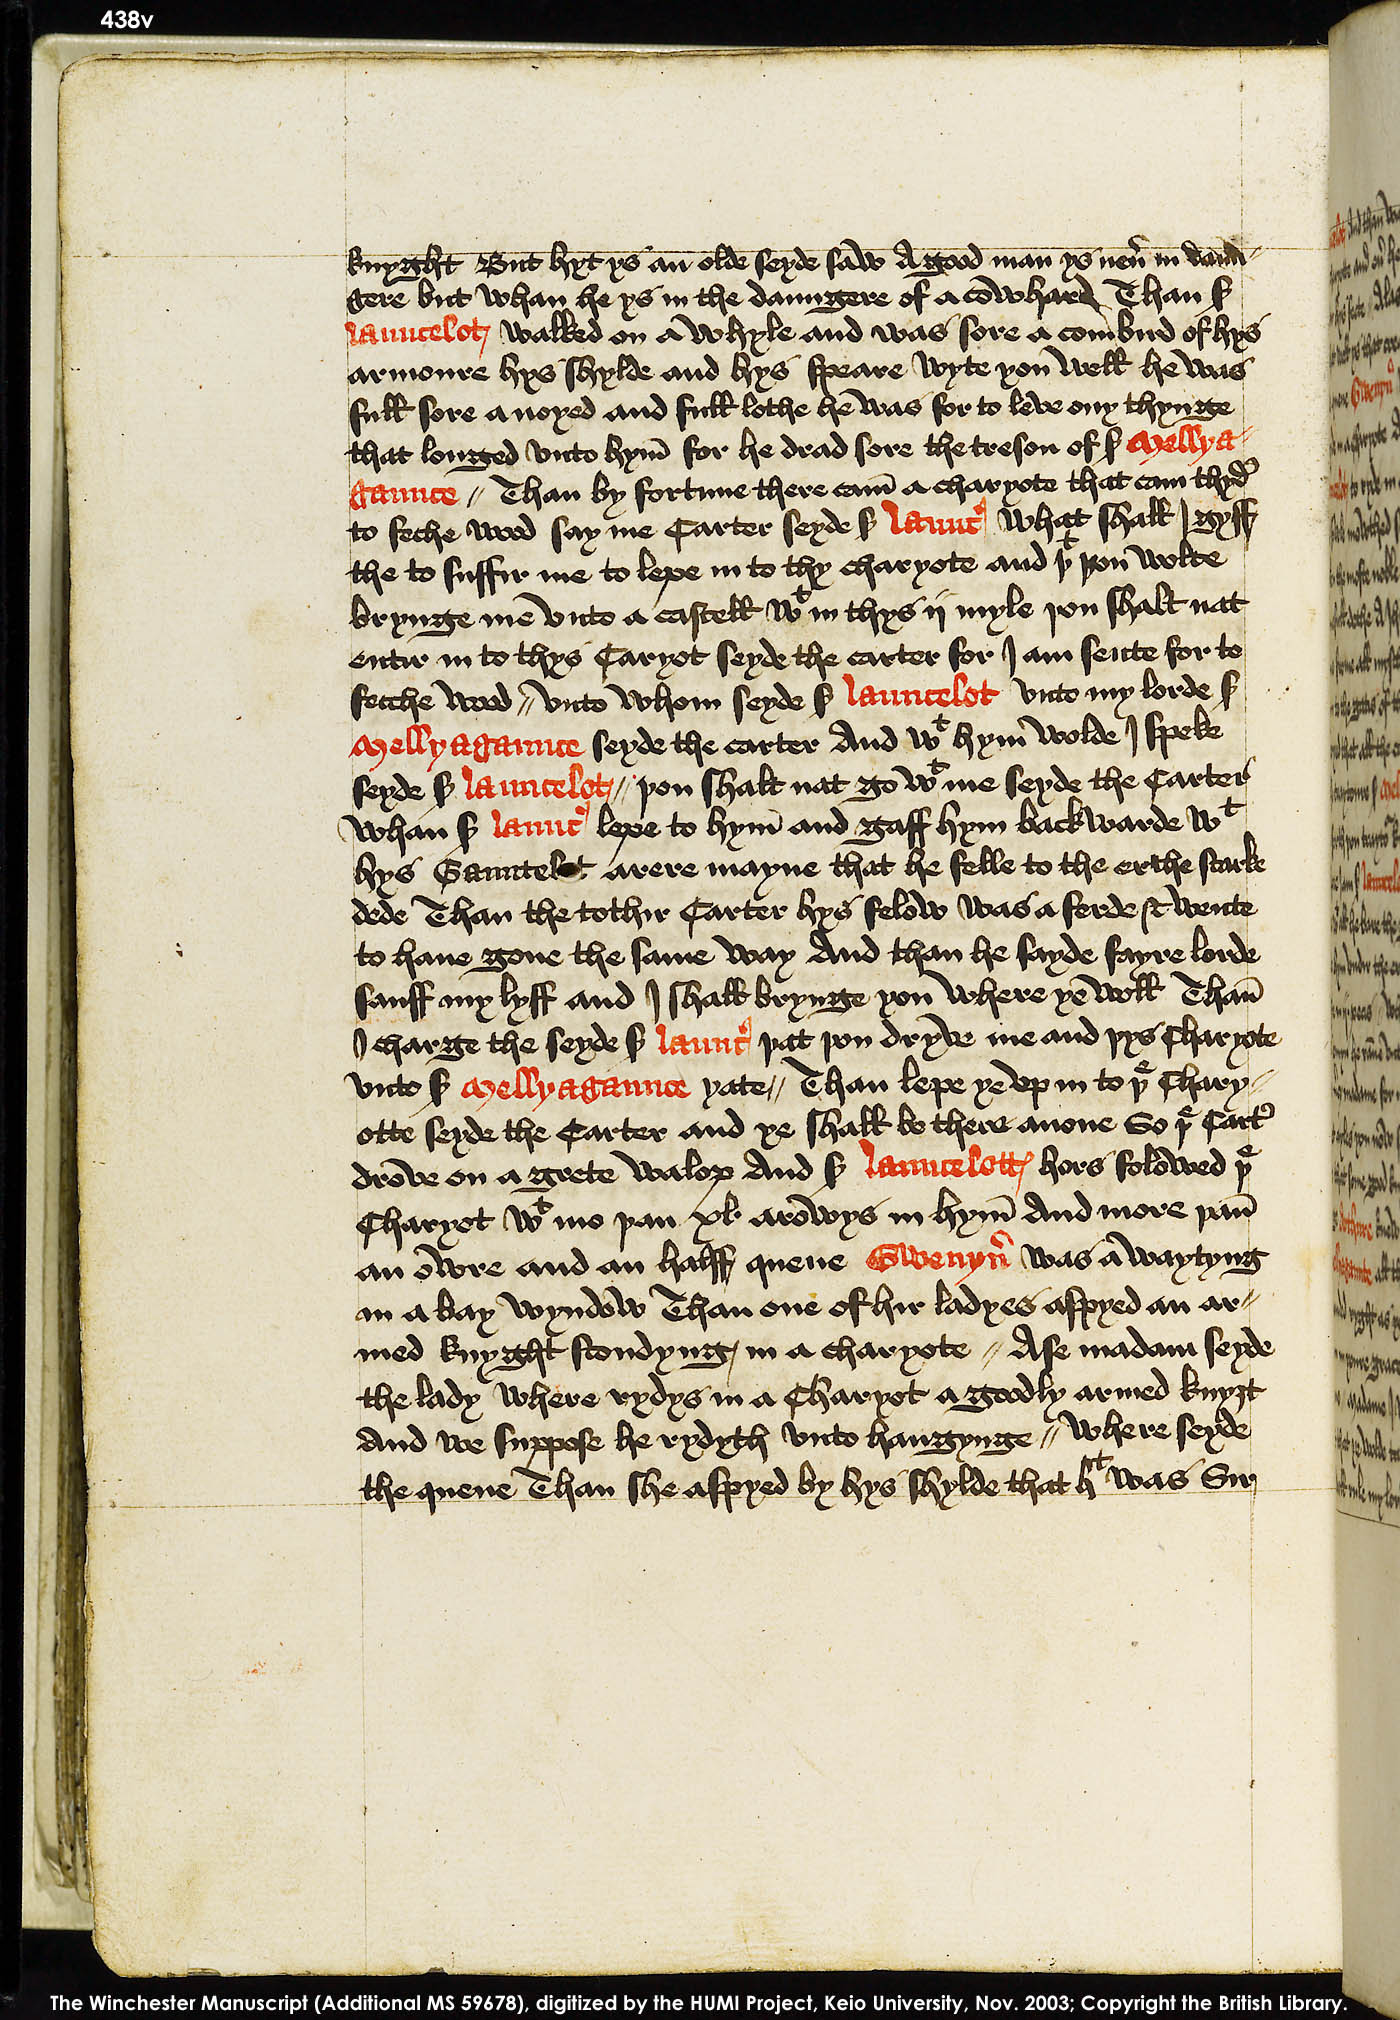 438v
knyght But hyt ys an olde seyde saw A good man ys neũ in daun-
gere but whan he ys in the daungere of a cowhard Than ẜ
launcelot walked on a whyle and was sore a combird of hys
armoure hys shylde and hys speare wyte you well he was
full sore a noyed and full lothe he was for to leve ony thynge
that longed vnto hym̄ for he drad sore the treson of ẜ Mellya-
gaunce // Than by fortune there cam̄ a charyote that cam thyd͛
to feche wood say me Carter seyde ẜ launc͛ what shall I gyff
the to suffir me to lepe in to thy charyote and þͭ þou wolte
brynge me vnto a castell wͭ in thys ij myle þou shalt nat
entir in to thys Caryot seyde the carter for I am sente for to
fecche wood // vnto whom seyde ẜ launcelot vnto my lorde ẜ
Mellyagaunce seyde the carter And wͭ hym̄ wolde I speke
seyde ẜ launcelot // þou shalt nat go wͭ me seyde the Carter
whan ẜ launc͛ lepe to hym̄ and gaff hym backwarde wͭ
hys Gauntelot arere mayne that he felle to the erthe starke
dede Than the tothir Carter hys felow was a ferde & wente
to haue gone the same way And than he sayde fayre lorde
sauff my lyff and I shall brynge you where ye woll Than̄
I charge the seyde ẜ launc͛ þat þou dryve me and þys Charyote
vnto ẜ Mellyagaunce yate // Than lepe ye vp in to þͤ Chary-
otte seyde the Carter and ye shall be there anone So þͤ Cart͛
drove on a grete walop And ẜ launcelott hors folowed þͤ
Charyot wͭ mo þan xl. arowys in hym̄ And more þan̄
an owre and an halff quene Gwenyū was a waytyng
in a bay wyndow Than one of hir ladyes aspyed an ar-
med knyght stondyng in a charyote // A se madam seyde
the lady where rydys in a Charyot a goodly armed knyȝt
And we suppose he rydyth vnto hangynge // where seyde
the quene Than she aspyed by hys shylde that hͭ was Sir
The Winchester Manuscript (Additional MS 59678), digitized by the HUMI Project, Keio University, Nov. 2003; Copyright the British Library.